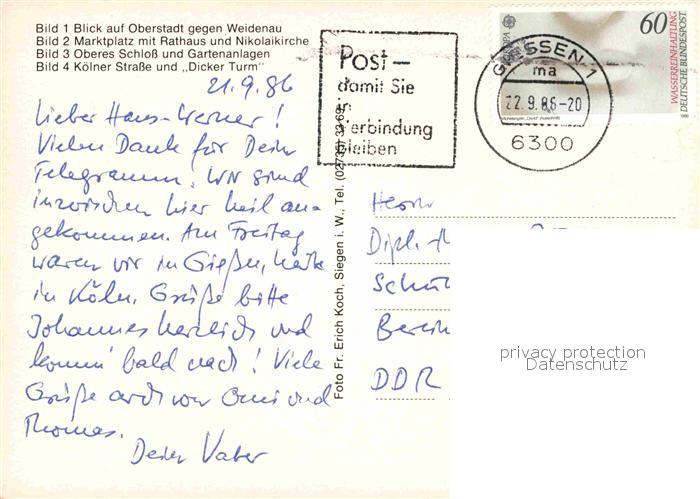 Bild 1 Blick auf Oberstadt gegen Weidenau
Bild 2 Marktplatz mit Rathaus und Nikolaikirche
Bild 3 Oberes Schloß und Gartenanlagen
Bild 4 Kölner Straße und „Dicker Turm“
21.9.86
Lieber Hans-Werner!
Vielen Dank für Dein
Telegramm! Wir sind
inzwischen hier heil an-
gekommen. Am Freitag
waren wir in Gießen, heute
in Köln. Grüße bitte
Johannes herzlich und
komm' bald nach! Viele
Grüße auch von Omi und
Thomas.
Dein Vater
Foto Fr. Erich Koch, Siegen i. W., Tel.
Post –
damit Sie
in
Verbindung
bleiben
GIESSEN 1
ma
22.9.86-20
6300
EUROPA
60
WASSERREINHALTUNG
DEUTSCHE BUNDESPOST
Herrn
Dipl.-
Schul
Berlin
DDR
privacy protection
Datenschutz